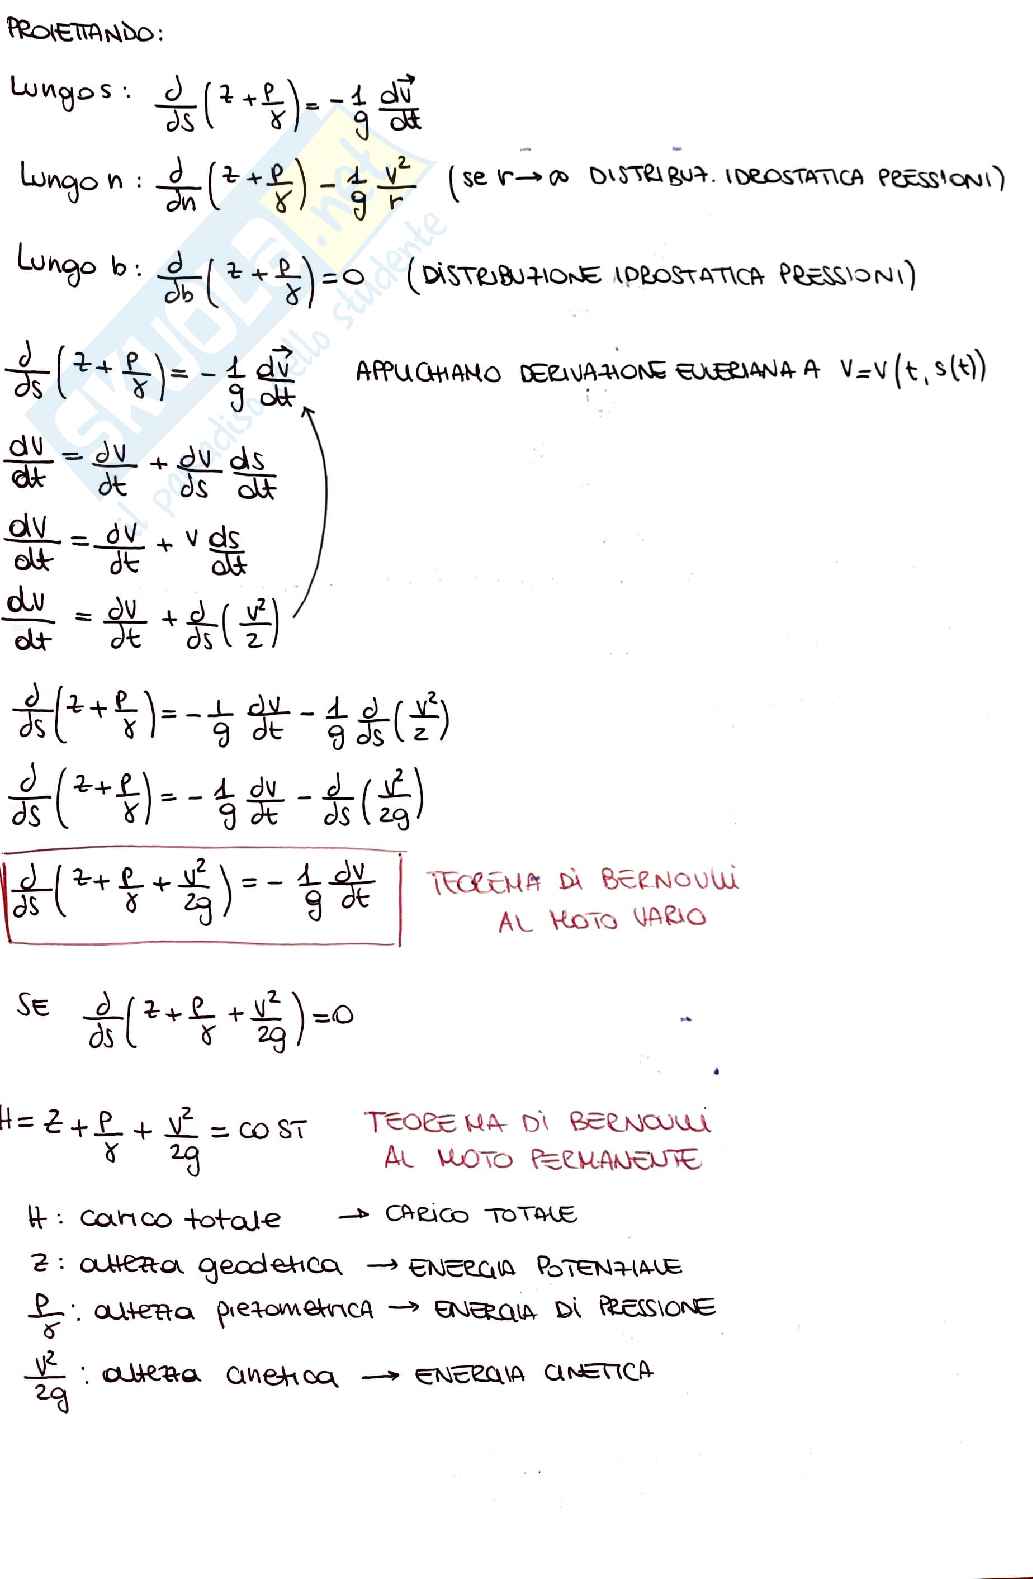 PROIETTANDO:
Lungo s: d/ds (z + p/γ) = - 1/g dv⃗/dt
Lungo n: d/dn (z + p/γ) - 1/g v²/r (se r → ∞ DISTRIBUZ. IDROSTATICA PRESSIONI)
Lungo b: d/db (z + p/γ) = 0 (DISTRIBUZIONE IDROSTATICA PRESSIONI)
d/ds (z + p/γ) = - 1/g dv⃗/dt APPLICHIAMO DERIVAZIONE EULERIANA A V=V(t, s(t))
dv/dt = dv/dt + dv/ds ds/dt
dv/dt = dv/dt + v ds/dt
dv/dt = dv/dt + d/ds (v²/2)
d/ds (z + p/γ) = - 1/g dv/dt - 1/g d/ds (v²/2)
d/ds (z + p/γ) = - 1/g dv/dt - d/ds (v²/2g)
d/ds (z + p/γ + v²/2g) = - 1/g dv/dt TEOREMA DI BERNOULLI
AL MOTO VARIO
SE d/ds (z + p/γ + v²/2g) = 0
H = z + p/γ + v²/2g = COST TEOREMA DI BERNOULLI
AL MOTO PERMANENTE
H: carico totale → CARICO TOTALE
z: altezza geodetica → ENERGIA POTENZIALE
p/γ: altezza piezometrica → ENERGIA DI PRESSIONE
v²/2g: altezza cinetica → ENERGIA CINETICA
SKUOLA.net
il paradiso dello studente